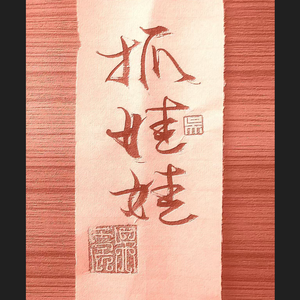 抓娃娃